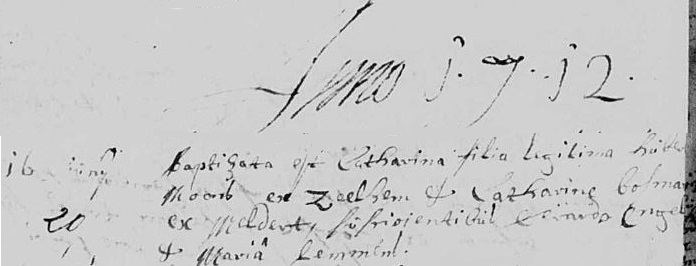 Anno 1712.
16 Juny Baptizata est Catharina filia legitima
Moors ex Zeelhem & Catharinę bosmans
20 ex Meldert, suscipientibus Gerardo Engel
& Mariâ Lemmen.